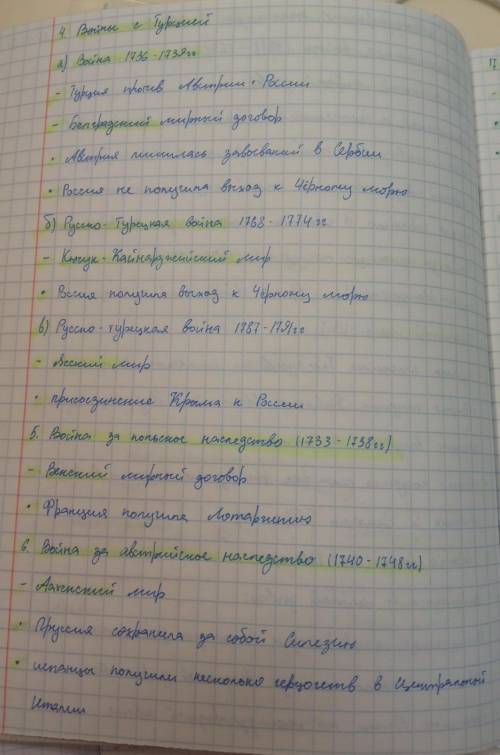 4. Войны с Турцией
а) Война 1736-1739гг
- Турция против Австрии и России
- Белградский мирный договор
• Австрия лишилась завоеваний в Сербии
• Россия не получила выход к Чёрному морю
б) Русско-Турецкая война 1768-1774гг
- Кючук-Кайнарджийский мир
• Россия получила выход к Чёрному морю
в) Русско-турецкая война 1787-1791гг
- Ясский мир
• присоединение Крыма к России
5. Война за польское наследство (1733-1738гг)
- Венский мирный договор
• Франция получила Лотарингию
6. Война за австрийское наследство (1740-1748гг)
- Аахенский мир
• Пруссия сохранила за собой Силезию
• испанцы получили несколько герцогств в Центральной
Италии